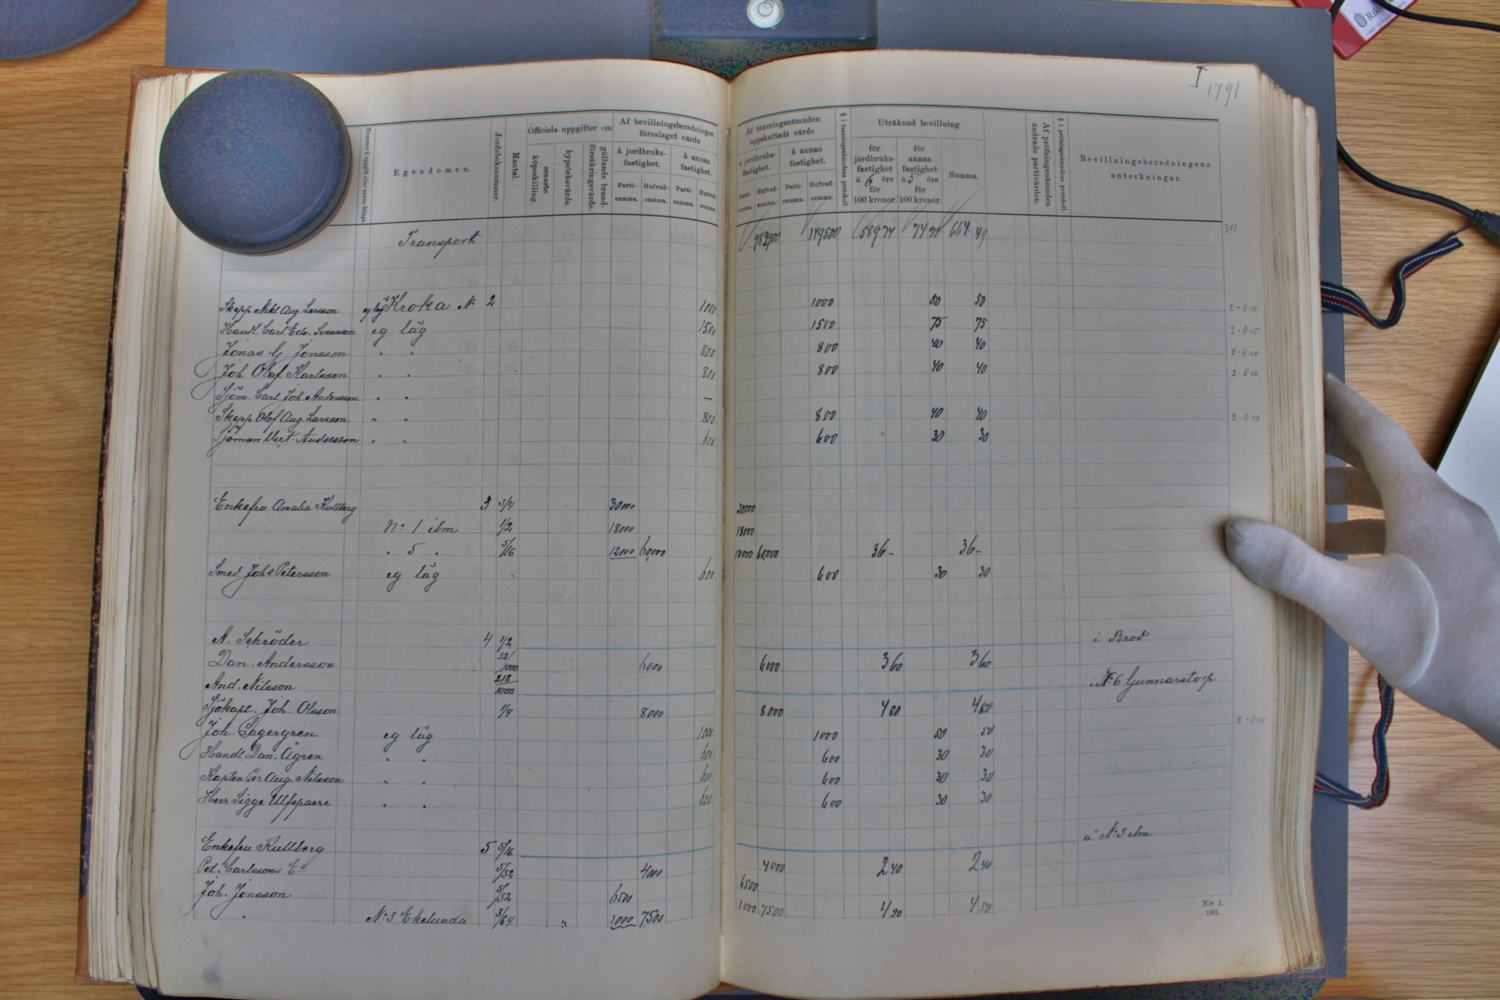 I 1791
Nummer å uppgift eller annan bilaga
Egendomen.
Jordeboksnummer.
Mantal.
Officiela uppgifter om
senaste köpeskilling.
hypoteksvärde.
gällande brandförsäkringsvärde.
Af bevillningsberedningen föreslaget värde
å jordbruksfastighet.
å annan fastighet.
Partisumma. Hufvudsumma. Partisumma. Hufvudsumma.
Af taxeringsnämnden uppskattadt värde
å jordbruksfastighet.
å annan fastighet.
Partisumma. Hufvudsumma. Partisumma. Hufvudsumma.
§ i taxeringsnämndens protokoll
Uträknad bevillning
för jordbruksfastighet à 6 öre för 100 kronor.
för annan fastighet à 5 öre för 100 kronor.
Summa.
Af pröfningsnämnden ändrade partivärden.
§ i pröfningsnämndens protokoll
Bevillningsberedningens anteckningar.
Transport 982900 149500 58974 7475 664 49
Skepp. Nikl Aug Larsson eg läg Kroka No 2 1000 1000 50 50
Handl. Carl Edv. Svensson eg läg 1500 1500 75 75
Jonas G. Jonsson " " 800 800 40 40
Joh. Olof Karlsson " " 800 800 40 40
Sjöm. Carl Joh. Andersson " " —
Skepp. Olof Aug Larsson " " 800 800 40 40
Sjöman Vict. Andersson " " 600 600 30 30
Enkefru Amalia Kullberg 3 3/4 30000 30000
No 1 ibm 1/2 18000 18000
" 5 " 5/16 12000 60000 12000 60000 36- 36-
Smed Johs Petersson eg läg 600 600 30 30
A. Schröder 4 1/2 i Brod
Dan. Andersson 32/1000 6000 6000 3 60 3 60
And. Nilsson 218/1000 i No 6 Gunnarstorp
Sjökapt. Joh. Olsson 1/4 8000 8000 4 80 4 80
Joh. Lagergren eg läg 1000 1000 50 50
Handl. Dan. Ågren " " 600 600 30 30
Kapten Per Aug. Nilsson " " 600 600 30 30
Herr Sigge Ulfsparre " " 600 600 30 30
Enkefru Kullberg 5 5/16 å No 3 ibm
Pet. Carlssons Eo 5/32 4000 4000 2 40 2 40
Joh. Jonsson 5/32 6500 6500
" No 3 Ekelunda 3/64 1000 7500 1000 7500 4 50 4 50
N:r 2.